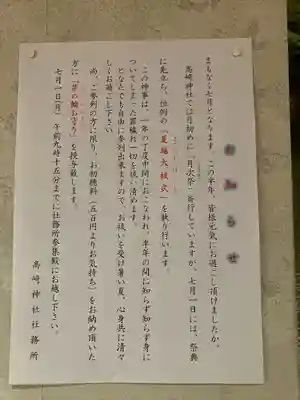 お知らせ
まもなく七月となります。この半年、皆様元気にお過ごし頂けましたか。
高崎神社では月初めに「月次祭」斎行していますが、七月一日には、祭典
に先立ち、恒例の「夏越大祓式」を執り行います。
この神事は、一年の丁度中間におこなわれ、半年の間に知らず知らず身に
ついてしまった罪穢れ一切を祓い清めます。
どなたでも自由に参列出来ますので、お祓いを受け暑い夏、心身共に清々
しくお過ごし下さい。
尚、ご参列の方に限り、お初穂料(五百円よりお気持ち)をお納め頂いた
方に「茅の輪お守り」を授与致します。
七月一日(月) 午前九時十五分までに社務所参集殿にお越し下さい。
高崎神社社務所